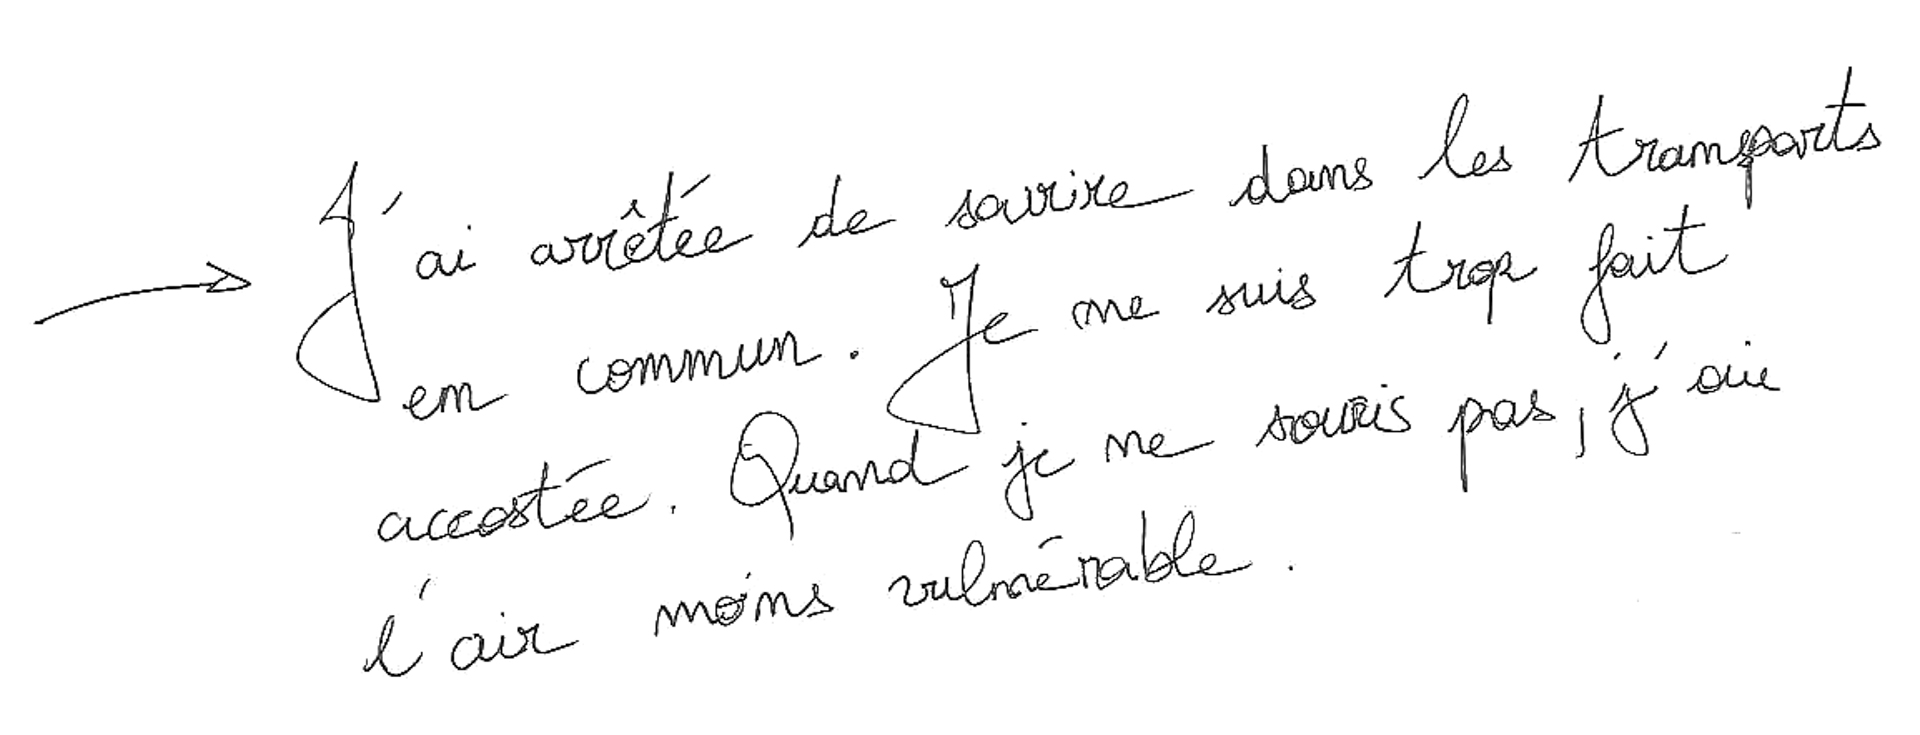 → J'ai arrêtée de sourire dans les transports
en commun. Je me suis trop fait
accostée. Quand je ne souris pas, j'ai
l'air moins vulnérable.